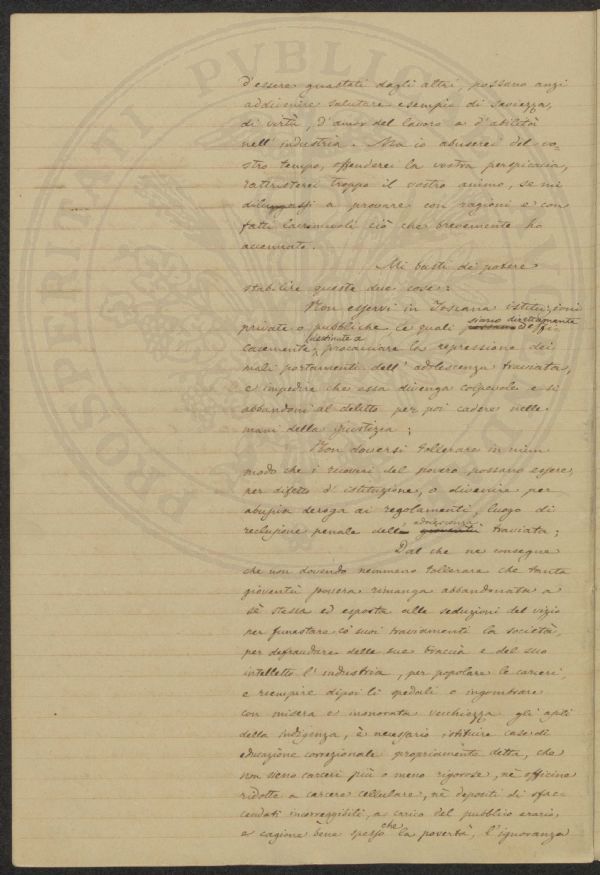 d'essere guastati dagli altri, possano anzi
addivenire salutare esempio di saviezza,
di virtù, d'amor del lavoro e d'abilità
nell'industria. Ma io abuserei del vo-
stro tempo, offenderei la vostra perspicacia,
rattristerei troppo il vostro animo, se mi
dilungassi a provare con ragioni e con
fatti lacrimevoli ciò che brevemente ho
accennato.
Mi basti di potere
stabilire queste due cose:
Non esservi in Toscana istituzioni
private o pubbliche le quali siano direttamente effi-
cacemente destinate a procacciare la repressione dei
mali portamenti dell'adolescenza traviata,
e impedire che essa divenga colpevole e si
abbandoni al delitto per poi cadere nelle
mani della giustizia;
Non doversi tollerare in niun
modo che i ricoveri del povero possano essere,
per difetto d'istituzione, o divenire per
abusiva deroga ai regolamenti, luogo di
reclusione penale dell' adolescenza traviata;
Dal che ne consegue
che non dovendo nemmeno tollerare che tanta
gioventù povera rimanga abbandonata a
sè stessa ed esposta alle seduzioni del vizio
per funestare co' suoi traviamenti la società,
per defraudare delle sue braccia e del suo
intelletto l'industria, per popolare le carceri,
e riempire dipoi li spedali o ingombrare
con misera e inonorata vecchiezza gli asili
della indigenza, è necessario istituire case di
educazione correzionale propriamente detta, che
non sieno carceri più o meno rigorose, nè officine
ridotte a carcere cellulare, nè depositi di sfac-
cendati incorreggibili, a carico del pubblico erario,
e cagione bene spesso che la povertà, l'ignoranza
PROSPERITATI PVBLICAE